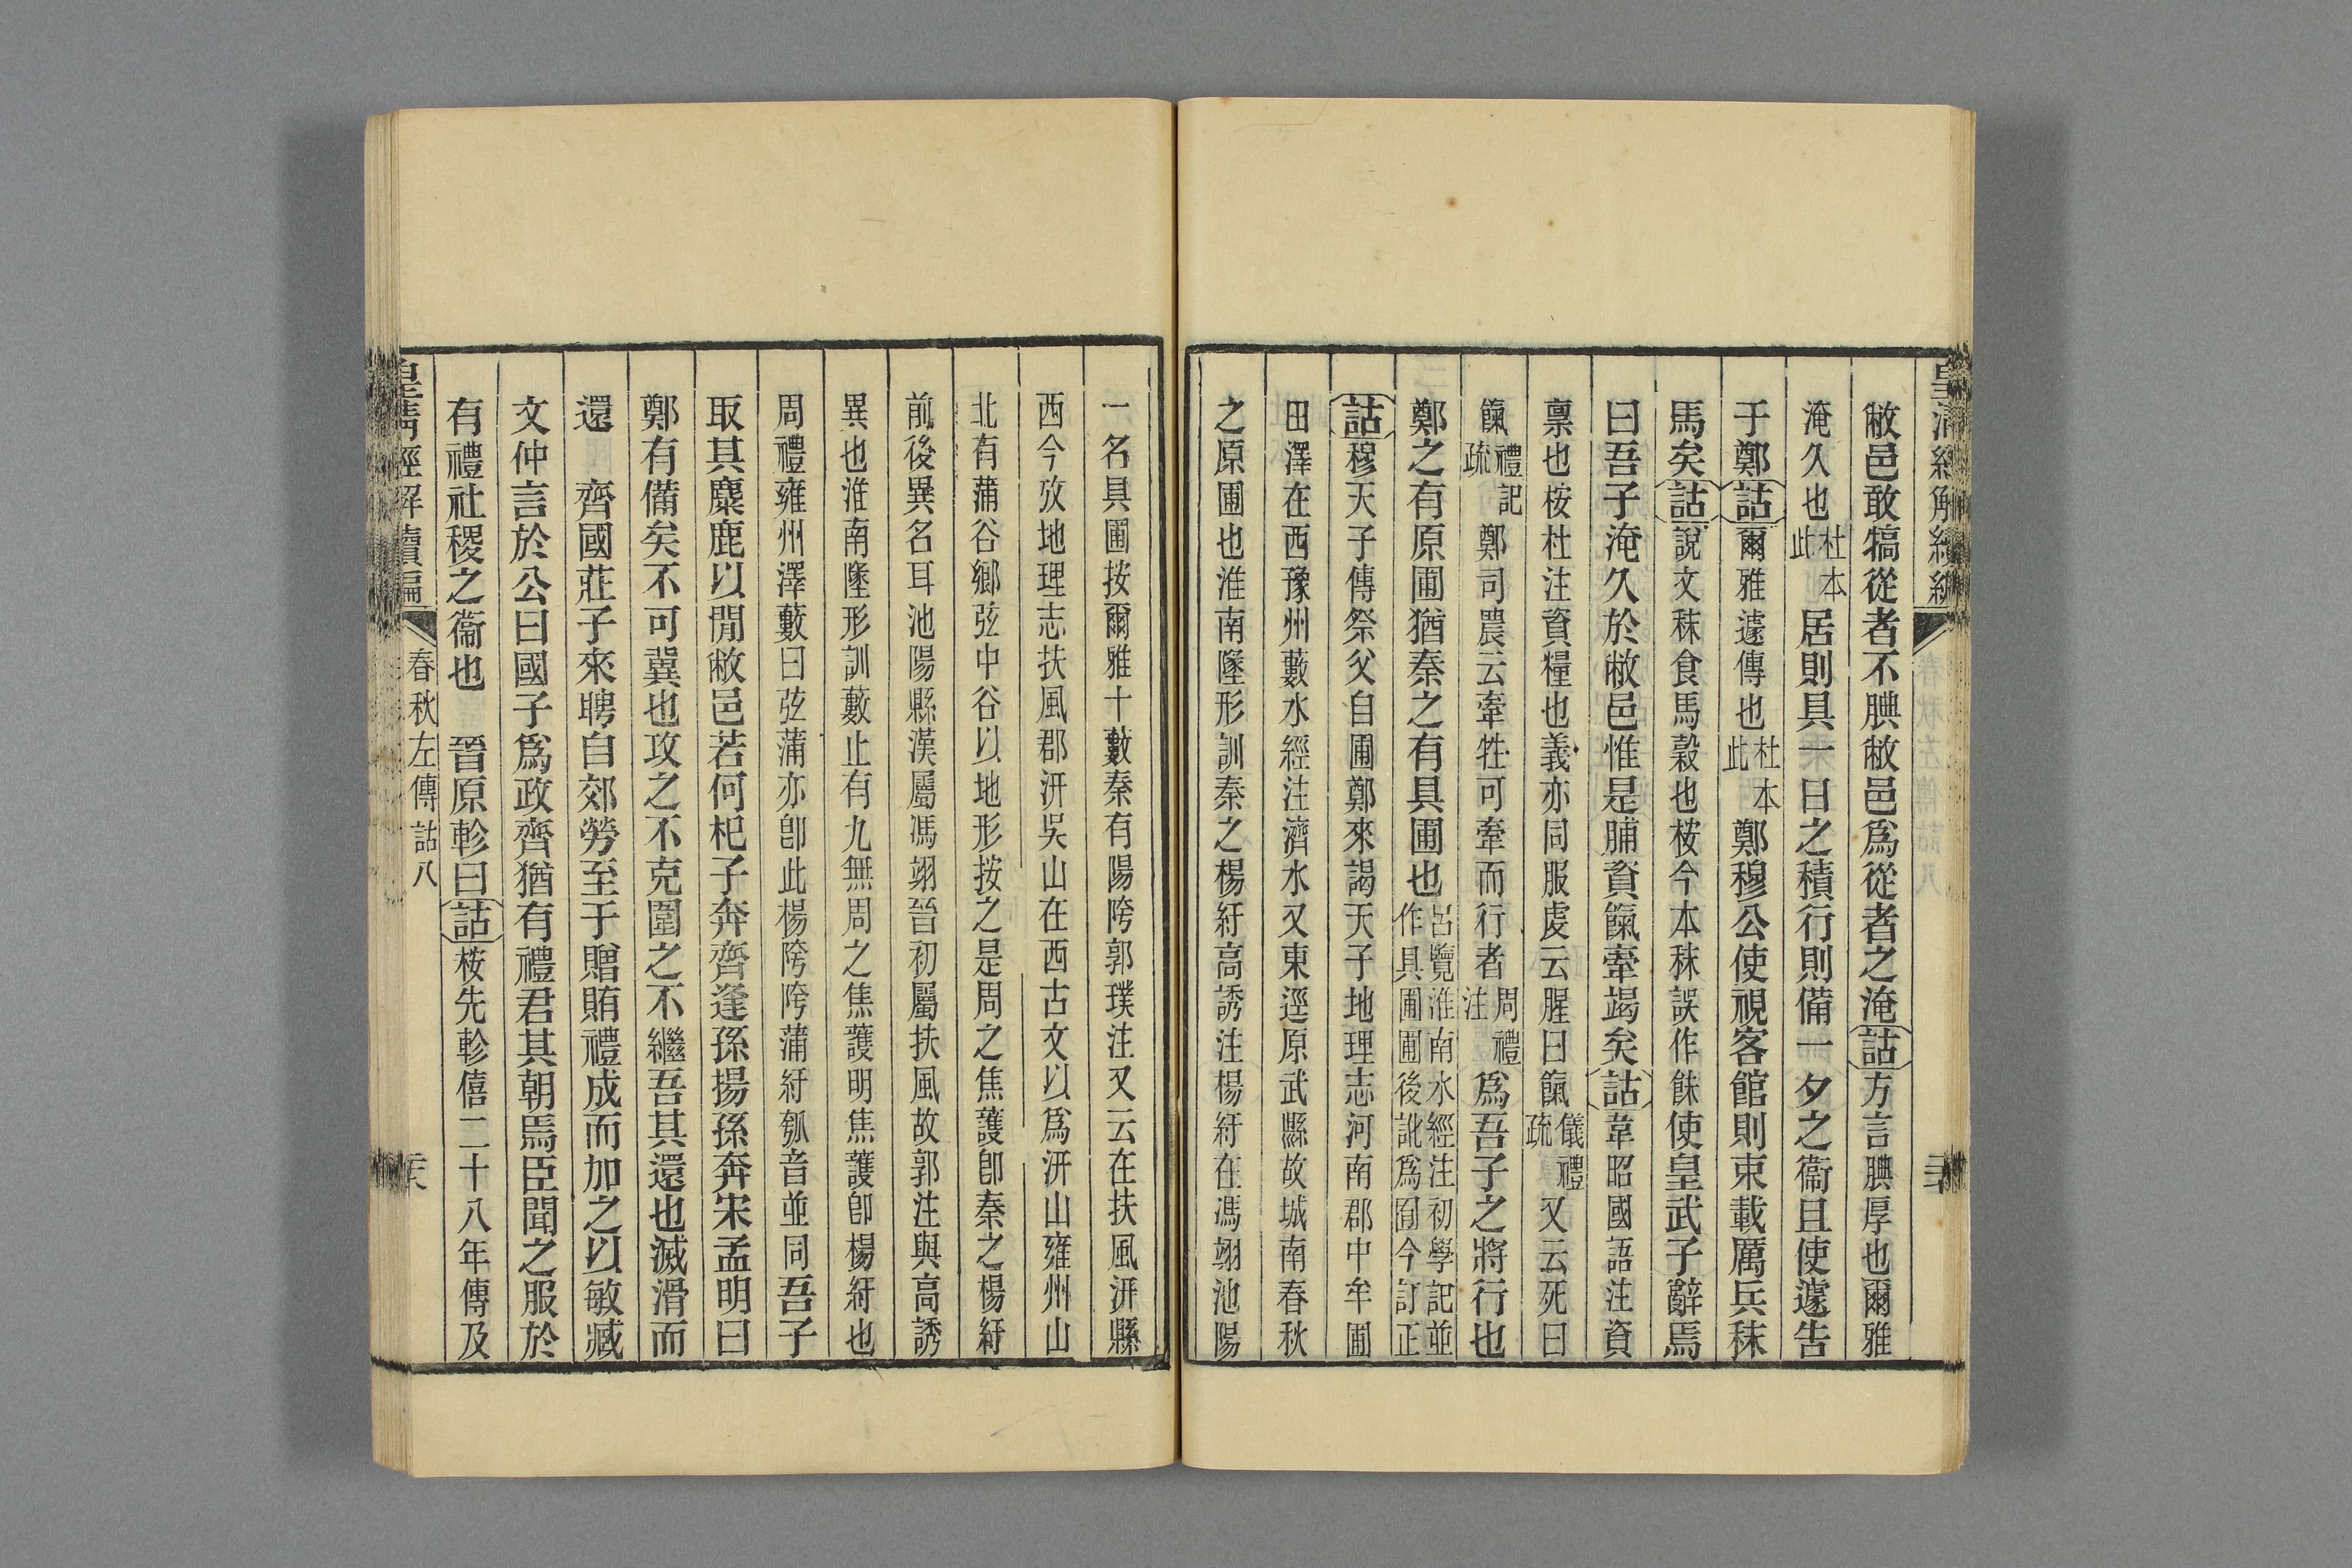 敝邑敢犒從者不腆敝邑爲從者之淹詁方言腆厚也爾雅
淹久也杜本此居則具一日之積行則備一夕之衞且使遽告
于鄭詁爾雅遽傳也杜本此鄭穆公使視客館則束載厲兵秣
馬矣詁說文秣食馬穀也桉今本秣誤作餗使皇武子辭焉
曰吾子淹久於敝邑惟是脯資餼牽竭矣詁韋昭國語注資
稟也桉杜注資糧也義亦同服虔云腥曰餼儀禮疏又云死曰
餼禮記疏鄭司農云牽牲可牽而行者周禮注爲吾子之將行也
鄭之有原圃猶秦之有具圃也呂覽淮南水經注初學記並作具圃圃後訛爲囿今訂正
詁穆天子傳祭父自圃鄭來謁天子地理志河南郡中牟圃
田澤在西豫州藪水經注濟水又東逕原武縣故城南春秋
之原圃也淮南墬形訓秦之楊紆高誘注楊紆在馮翊池陽
一名具圃按爾雅十藪秦有陽陓郭璞注又云在扶風汧縣
西今攷地理志扶風郡汧吳山在西古文以爲汧山雍州山
北有蒲谷鄉弦中谷以地形按之是周之焦護卽秦之楊紆
前後異名耳池陽縣漢屬馮翊晉初屬扶風故郭注與高誘
異也淮南墬形訓藪止有九無周之焦護明焦護卽楊紆也
周禮雍州澤藪曰弦蒲亦卽此楊陓陓蒲紆瓠音並同吾子
取其麋鹿以閒敝邑若何杞子奔齊逢孫揚孫奔宋孟明曰
鄭有備矣不可冀也攻之不克圍之不繼吾其還也滅滑而
還　齊國莊子來聘自郊勞至于贈賄禮成而加之以敏臧
文仲言於公曰國子爲政齊猶有禮君其朝焉臣聞之服於
有禮社稷之衞也　晉原軫曰詁桉先軫僖二十八年傳及
皇清經解續編　春秋左傳詁八